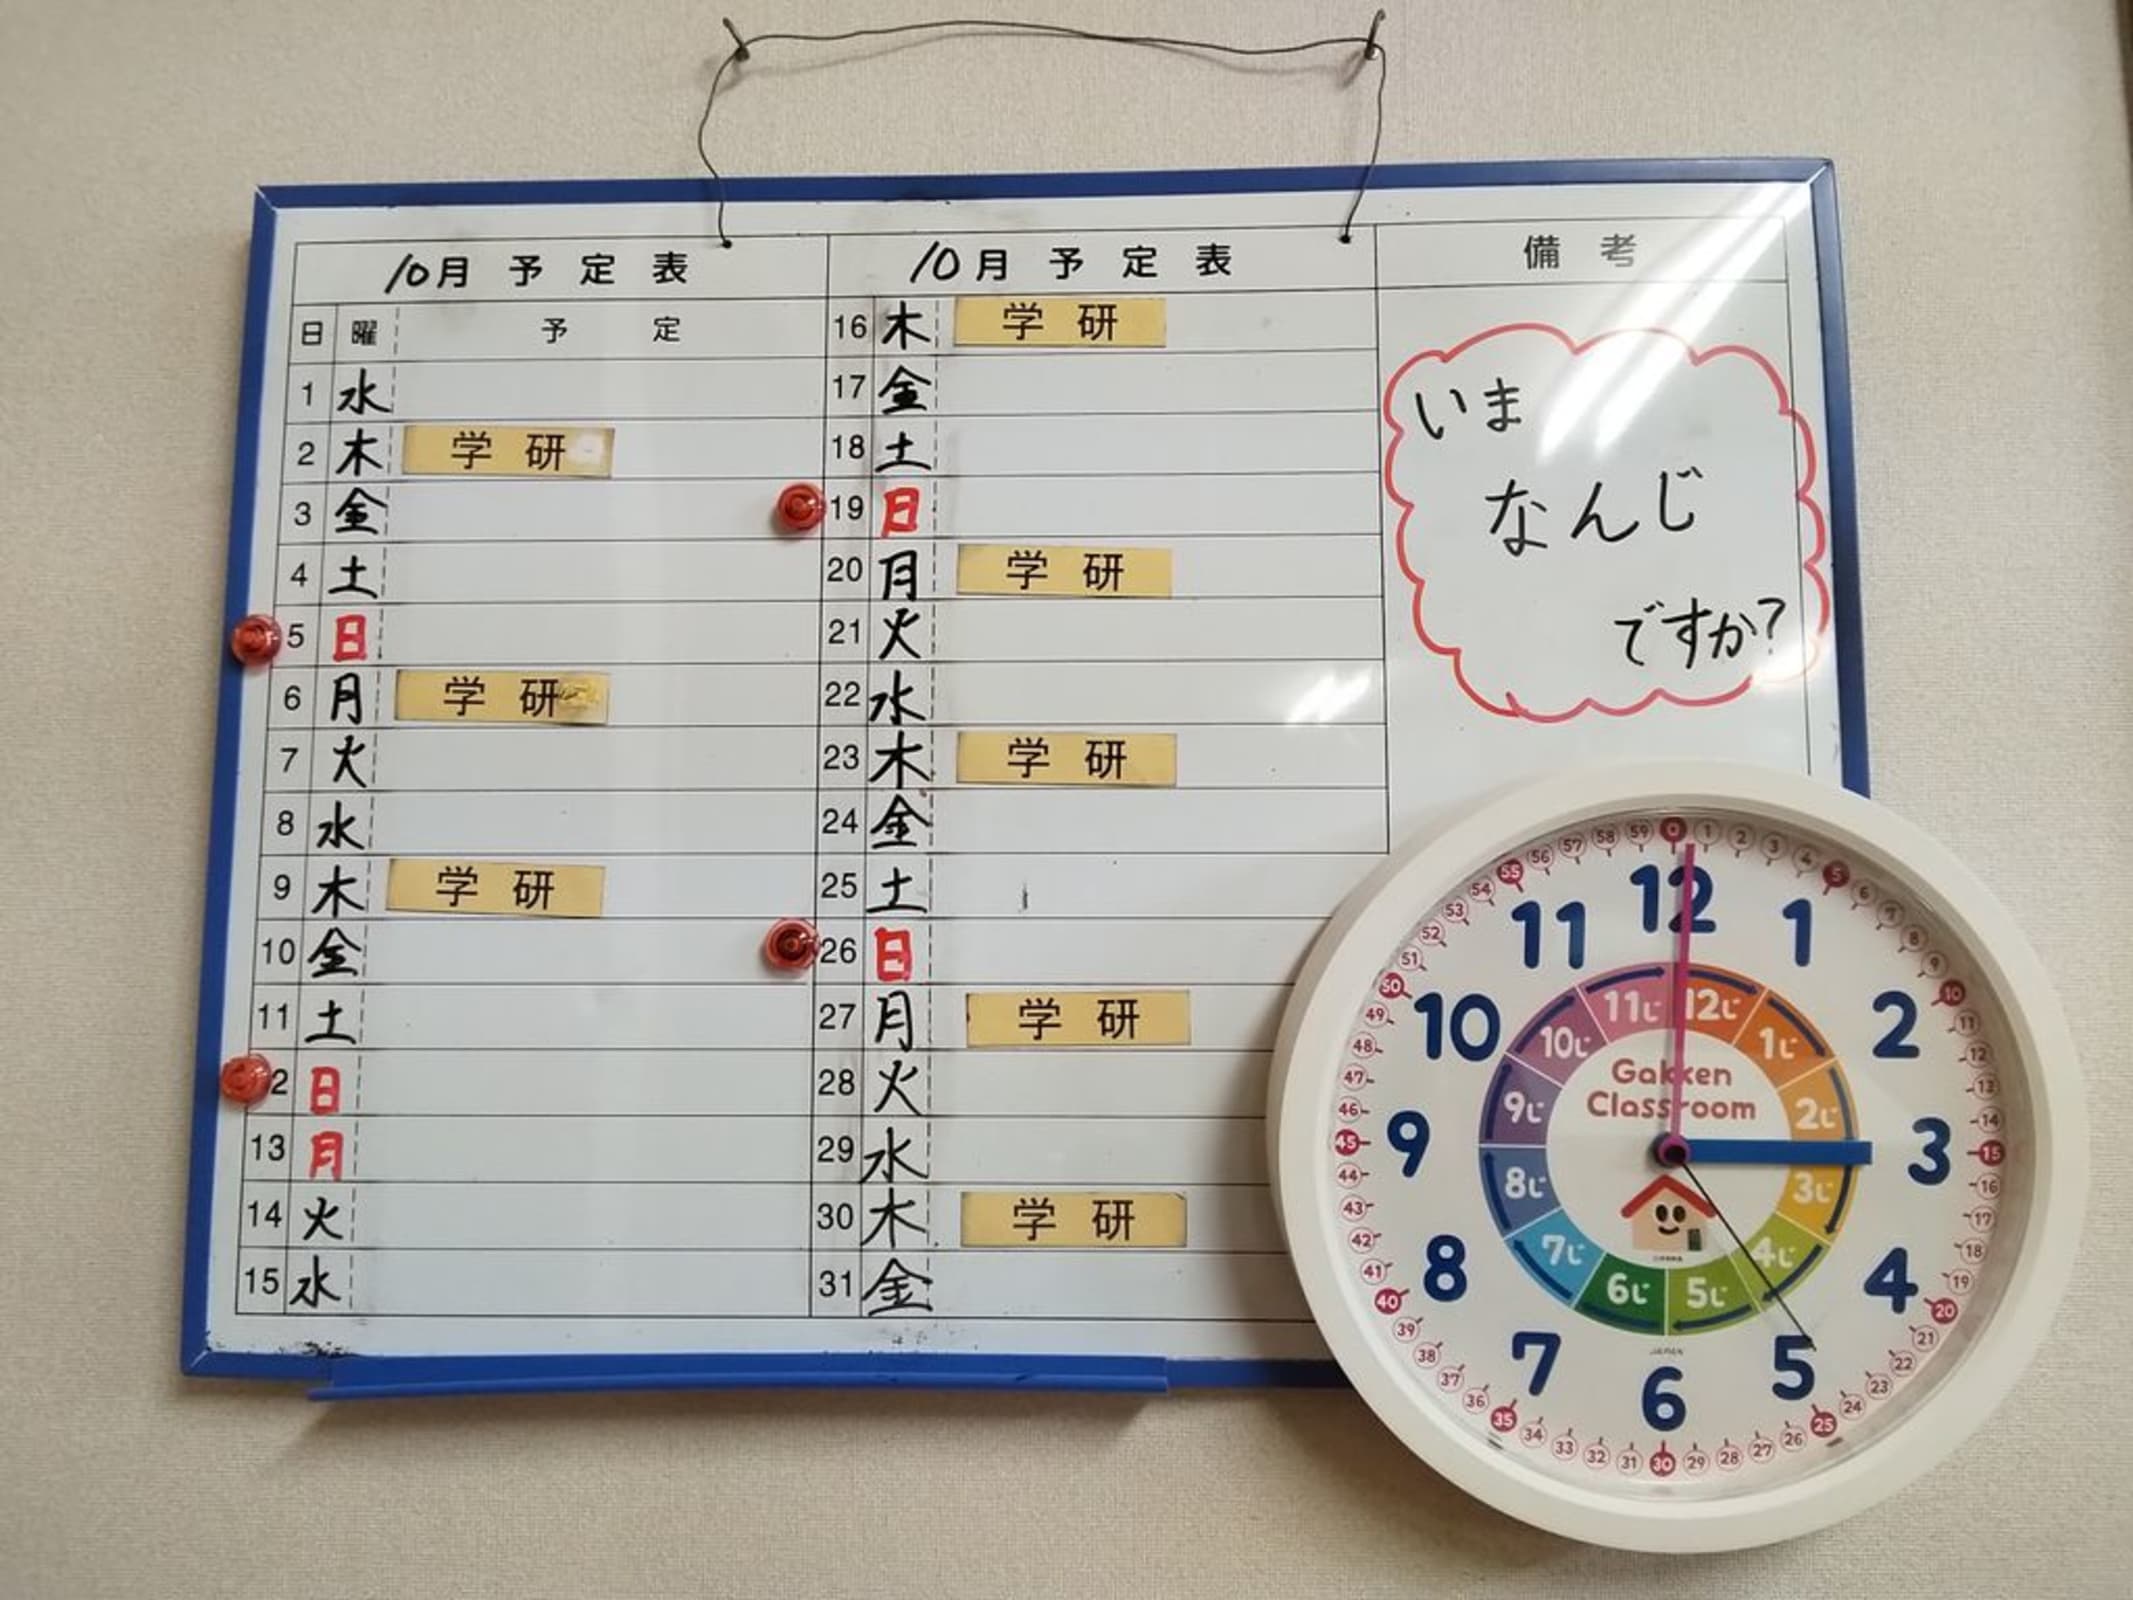 10月 予 定 表
日 曜 予 定
1 水
2 木 学 研
3 金
4 土
5 日
6 月 学 研
7 火
8 水
9 木 学 研
10 金
11 土
2 日
13 月
14 火
15 水
10月 予 定 表
16 木 学 研
17 金
18 土
19 日
20 月 学 研
21 火
22 水
23 木 学 研
24 金
25 土
26 日
27 月 学 研
28 火
29 水
30 木 学 研
31 金
備 考
いま
なんじ
ですか?
0 1 2 3 4 5 6 7 8 9 10 11 12 13 14 15 16 17 18 19 20 21 22 23 24 25 26 27 28 29 30 31 32 33 34 35 36 37 38 39 40 41 42 43 44 45 46 47 48 49 50 51 52 53 54 55 56 57 58 59
12 1 2 3 4 5 6 7 8 9 10 11
12じ 1じ 2じ 3じ 4じ 5じ 6じ 7じ 8じ 9じ 10じ 11じ
Gakken
Classroom
JAPAN